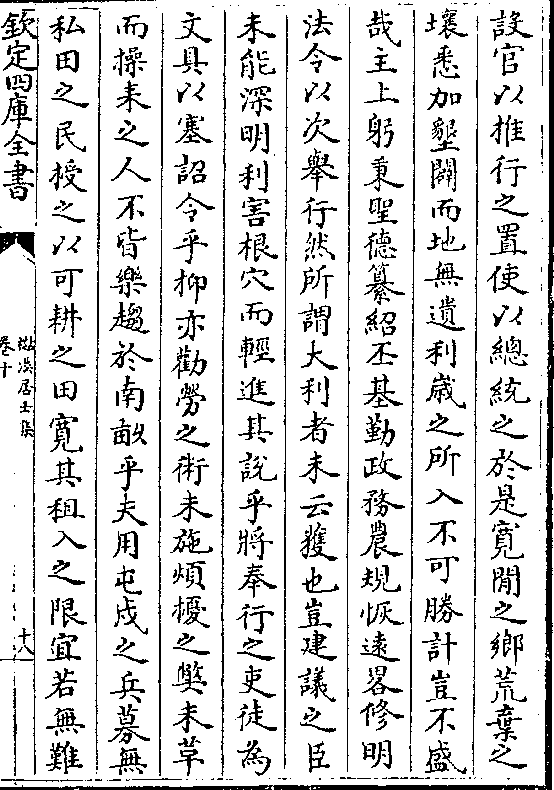 設官以推行之置使以總統之於是寛閒之鄉荒棄之
壤悉加墾闢而地無遺利歲之所入不可勝計豈不盛
哉主上躬秉聖德纂紹丕基勤政務農規恢遠畧修明
法令以次舉行然所謂大利者未云獲也豈建議之臣
未能深明利害根穴而輕進其說乎將奉行之吏徒為
文具以塞詔令乎抑亦勸勞之術未施煩擾之弊未革
而操耒之人不皆樂趨於南畝乎夫用屯戍之兵募無
私田之民授之以可耕之田寛其租入之限宜若無難
欽定四庫全書
居士集
卷十
十八